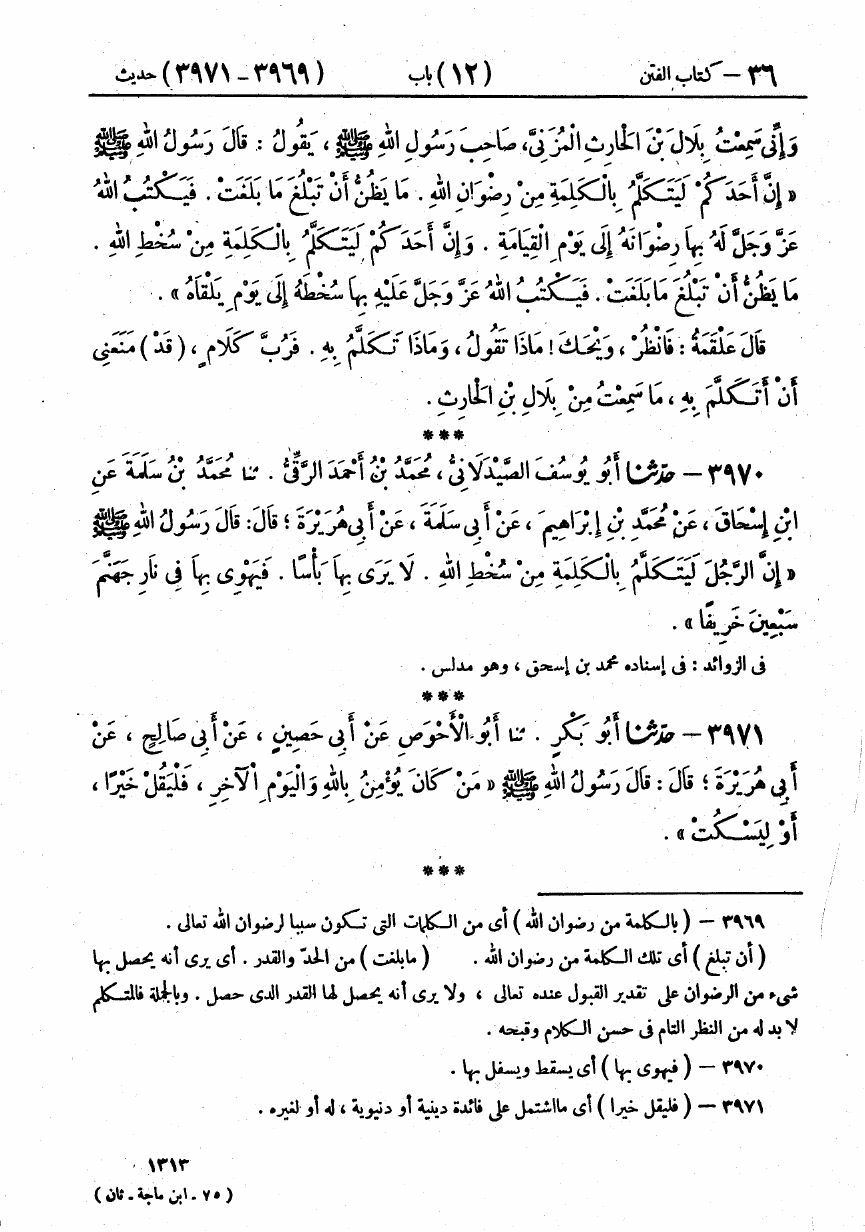 ٣٦ – كتاب الفتن (١٢) باب (٣٩٦٩ – ٣٩٧١) حديث
وَإِنِّى سَمِعْتُ بِلَالَ بْنَ الْحَارِثِ الْمُزَنِىَّ، صَاحِبَ رَسُولِ اللهِ ﷺ، يَقُولُ : قَالَ رَسُولُ اللهِ ﷺ
« إِنَّ أَحَدَكُمْ لَيَتَكَلَّمُ بِالْكَلِمَةِ مِنْ رِضْوَانِ اللهِ . مَا يَظُنُّ أَنْ تَبْلُغَ مَا بَلَغَتْ . فَيَكْتُبُ اللهُ
عَزَّ وَجَلَّ لَهُ بِهَا رِضْوَانَهُ إِلَى يَوْمِ الْقِيَامَةِ . وَإِنَّ أَحَدَكُمْ لَيَتَكَلَّمُ بِالْكَلِمَةِ مِنْ سُخْطِ اللهِ .
مَا يَظُنُّ أَنْ تَبْلُغَ مَا بَلَغَتْ . فَيَكْتُبُ اللهُ عَزَّ وَجَلَّ عَلَيْهِ بِهَا سُخْطَهُ إِلَى يَوْمِ يَلْقَاهُ » .
قَالَ عَلْقَمَةُ : فَانْظُرْ ، وَيْحَكَ ! مَاذَا تَقُولُ ، وَمَاذَا تَكَلَّمُ بِهِ . فَرُبَّ كَلَامٍ ، ( قَدْ ) مَنَعَنِى
أَنْ أَتَكَلَّمَ بِهِ ، مَا سَمِعْتُ مِنْ بِلَالِ بْنِ الْحَارِثِ .
***
٣٩٧٠ – حَدَّثَنَا أَبُو يُوسُفَ الصَّيْدَلَانِىُّ ، مُحَمَّدُ بْنُ أَحْمَدَ الرَّقِّىُّ . ثنا مُحَمَّدُ بْنُ سَلَمَةَ عَنِ
ابْنِ إِسْحَاقَ ، عَنْ مُحَمَّدِ بْنِ إِبْرَاهِيمَ ، عَنْ أَبِى سَلَمَةَ ، عَنْ أَبِى هُرَيْرَةَ ؛ قَالَ: قَالَ رَسُولُ اللهِ ﷺ
« إِنَّ الرَّجُلَ لَيَتَكَلَّمُ بِالْكَلِمَةِ مِنْ سُخْطِ اللهِ . لَا يَرَى بِهَا بَأْسًا . فَيَهْوِى بِهَا فِى نَارِ جَهَنَّمَ
سَبْعِينَ خَرِيفًا » .
فى الزوائد : فى إسناده محمد بن إسحق ، وهو مدلس .
***
٣٩٧١ – حَدَّثَنَا أَبُو بَكْرٍ . ثنا أَبُو الْأَحْوَصِ عَنْ أَبِى حَصِينٍ ، عَنْ أَبِى صَالِحٍ ، عَنْ
أَبِى هُرَيْرَةَ ؛ قَالَ : قَالَ رَسُولُ اللهِ ﷺ « مَنْ كَانَ يُؤْمِنُ بِاللهِ وَالْيَوْمِ الْآخِرِ ، فَلْيَقُلْ خَيْرًا ،
أَوْ لِيَسْكُتْ » .
***
٣٩٦٩ – ( بالكلمة من رضوان الله ) أى من الكلمات التى تكون سببا لرضوان الله تعالى .
( أن تبلغ ) أى تلك الكلمة من رضوان الله . ( مابلغت ) من الحدّ والقدر . أى يرى أنه يحصل بها
شىء من الرضوان على تقدير القبول عنده تعالى ، ولا يرى أنه يحصل لها القدر الذى حصل . وبالجملة فالمتكلم
لا بد له من النظر التام فى حسن الكلام وقبحه .
٣٩٧٠ – ( فيهوى بها ) أى يسقط ويسفل بها .
٣٩٧١ – ( فليقل خيرا ) أى مااشتمل على فائدة دينية أو دنيوية ، له أو لغيره .
١٣١٣
( ٧٥ – ابن ماجة – ثان )